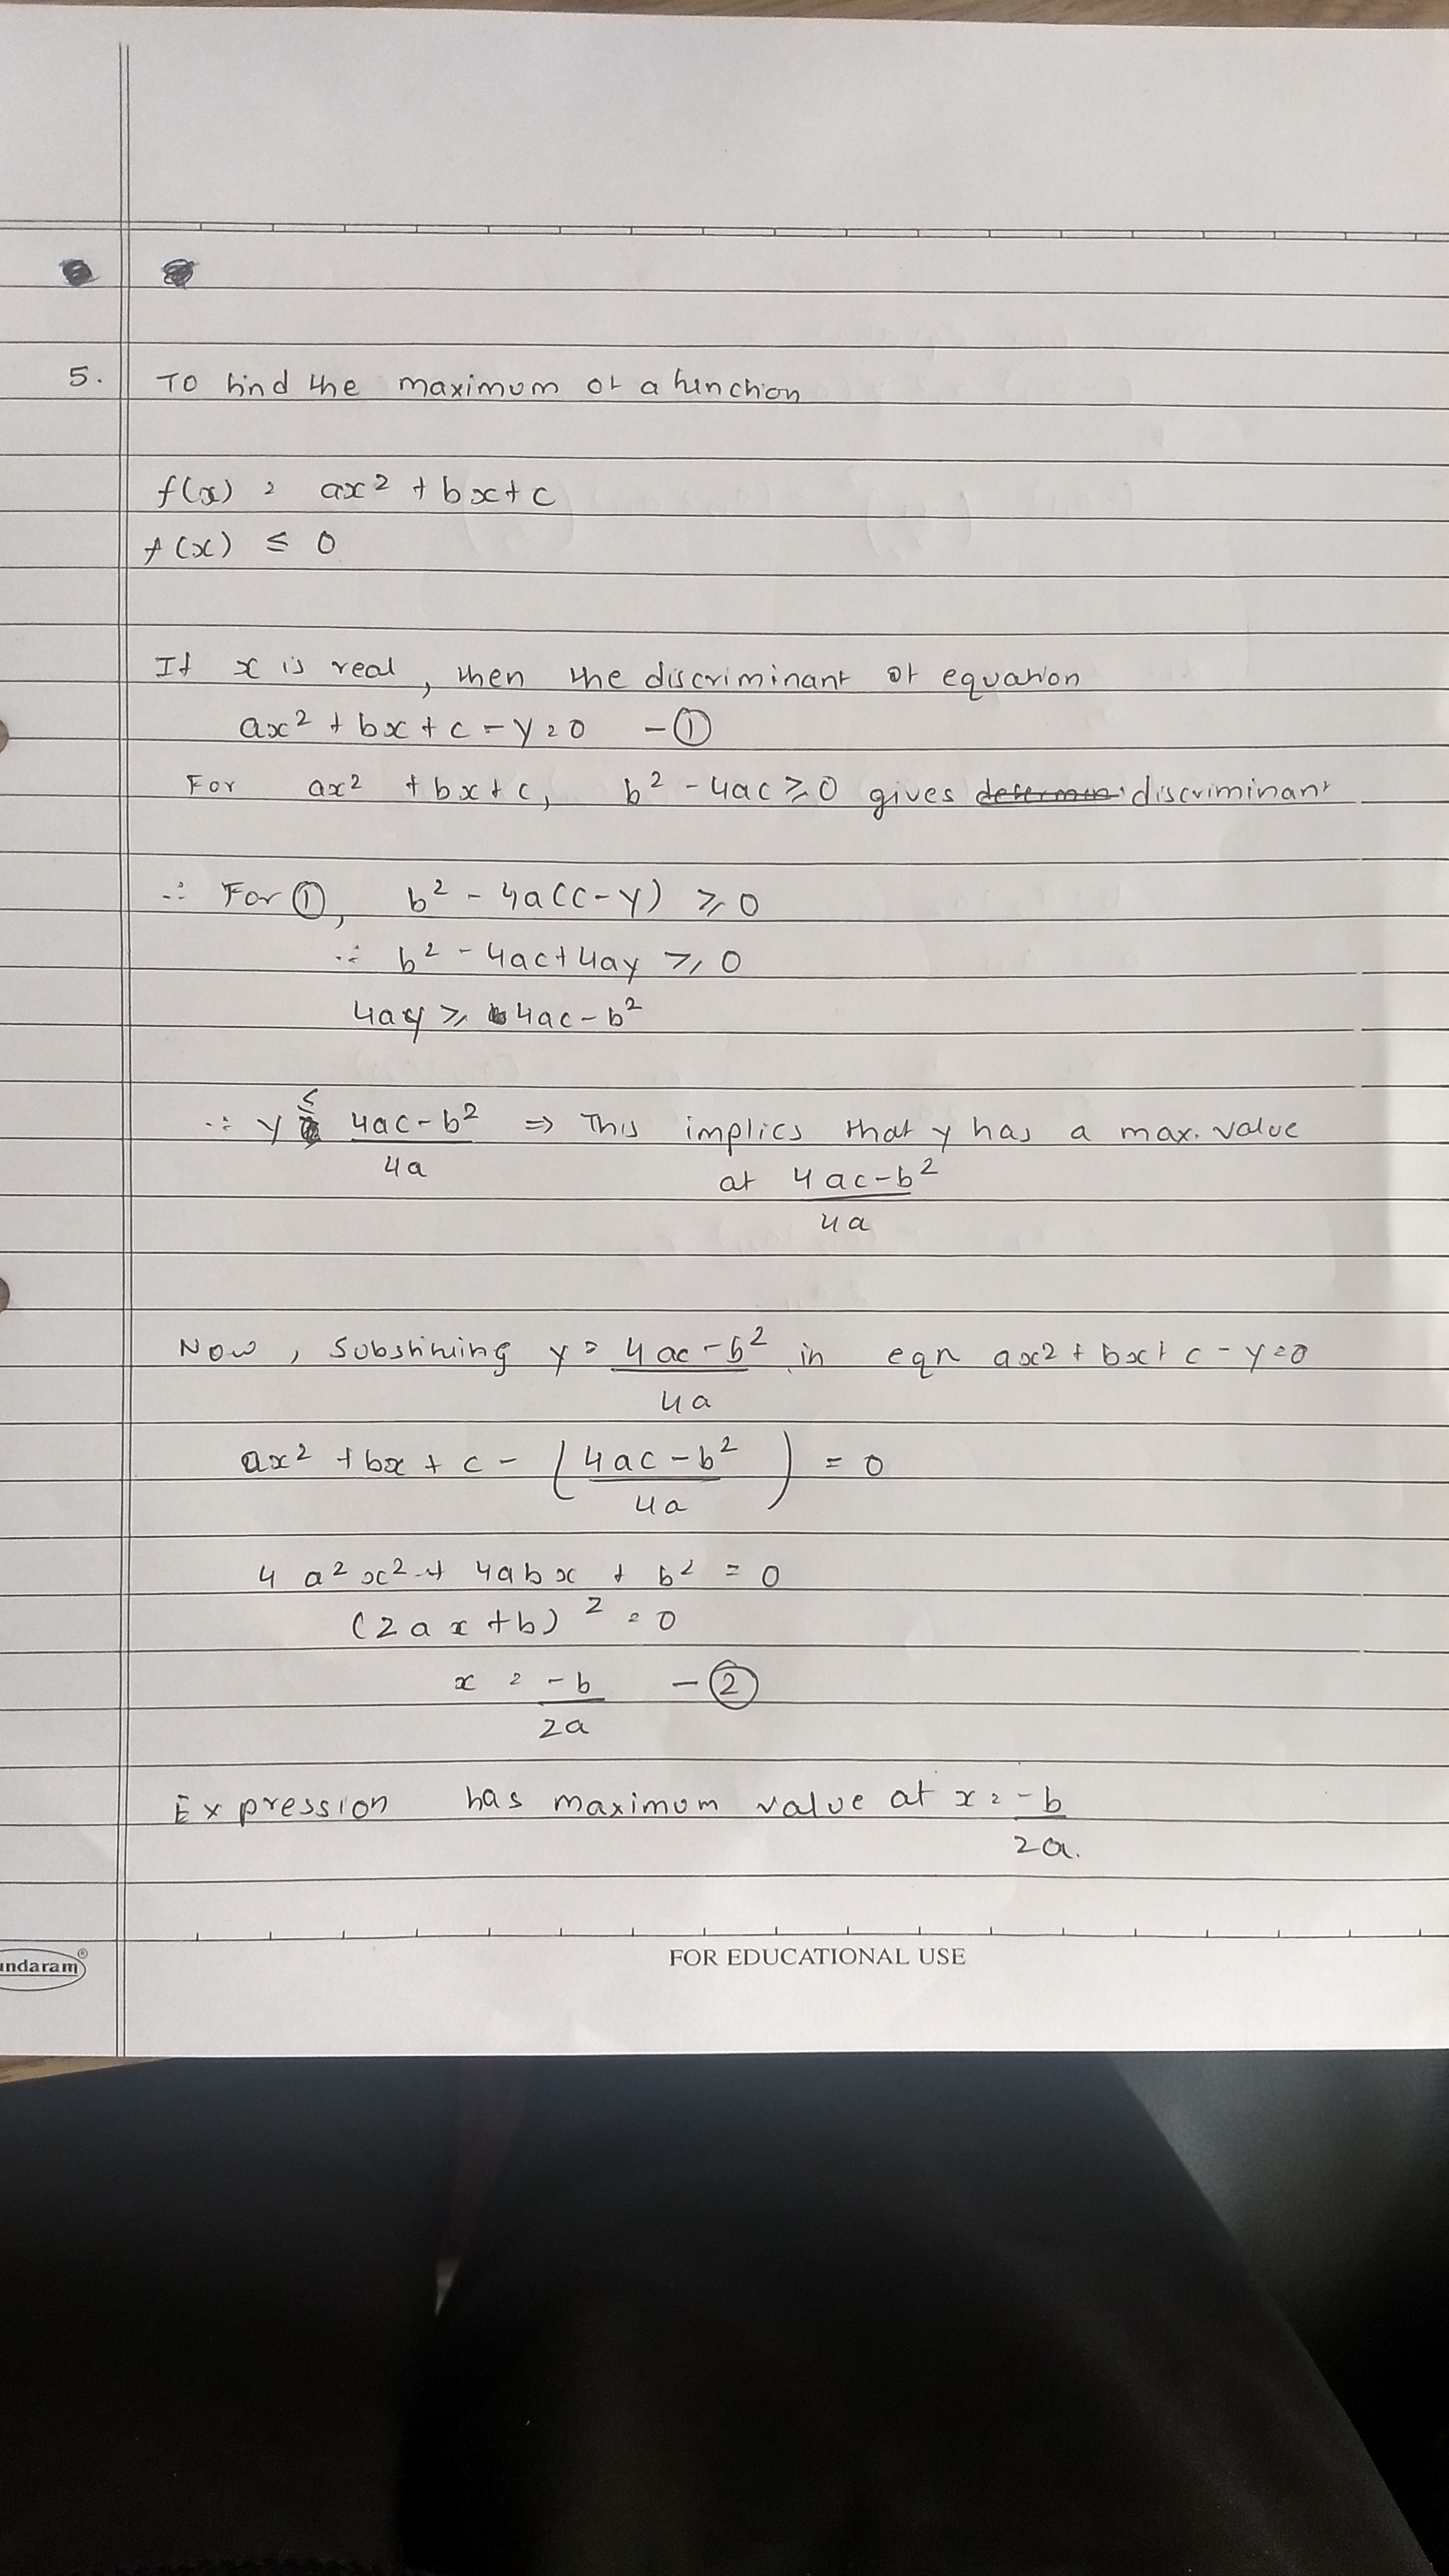 5. To find the maximum of a function
f(x) = ax² + bx + c
f(x) ≤ 0
If x is real, then the discriminant of equation
ax² + bx + c - y = 0 - ①
For ax² + bx + c, b² - 4ac ≥ 0 gives discriminant
∴ For ①, b² - 4a(c-y) ≥ 0
∴ b² - 4ac + 4ay ≥ 0
4ay ≥ 4ac - b²
∴ y ≤ 4ac - b² / 4a ⇒ This implies that y has a max. value
at 4ac - b² / 4a
Now, Substining y = 4ac - b² / 4a in eqn ax² + bx + c - y = 0
ax² + bx + c - (4ac - b² / 4a) = 0
4a²x² + 4abx + b² = 0
(2ax + b)² = 0
x = -b / 2a - ②
Expression has maximum value at x = -b / 2a.
ndaram®
FOR EDUCATIONAL USE